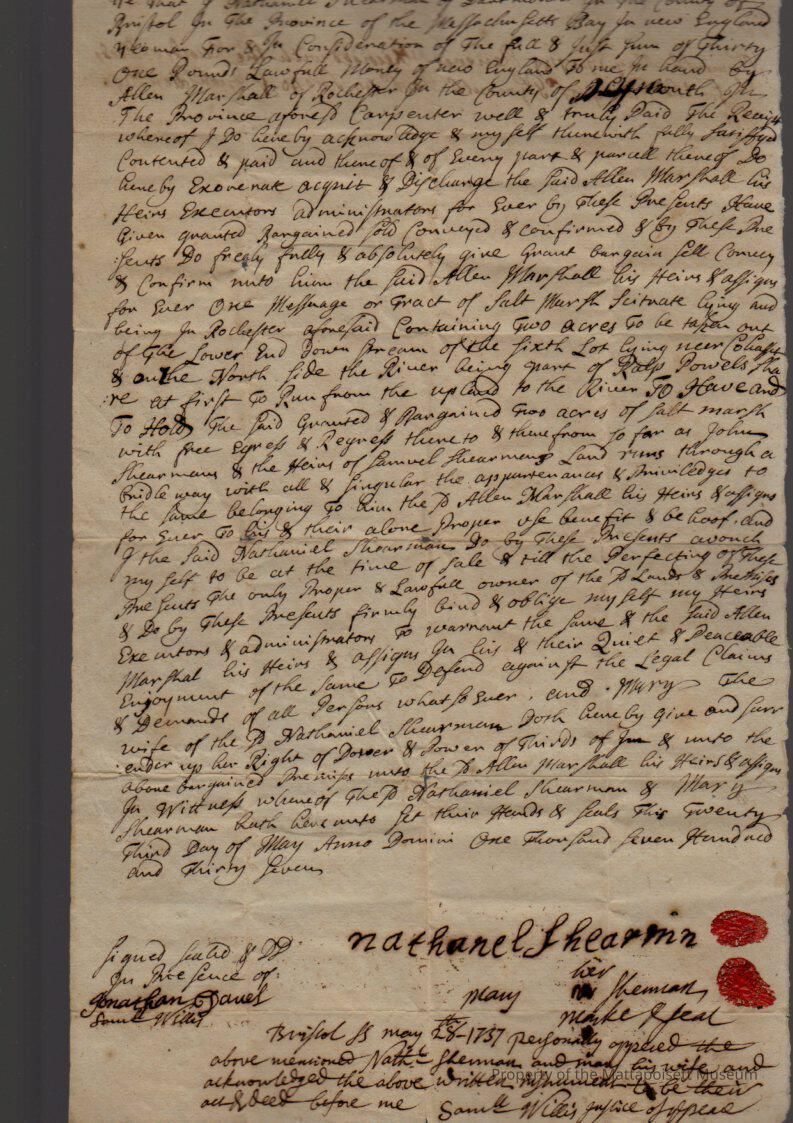 that I Nathaniel Shearman of Dartmouth In the County of
Bristol In The Province of the Massachusetts Bay In new England
yeoman For & In Consideration of The full & Just Sum of Thirty
One Pounds Lawfull Money of new England To me In hand by
Allen Marshall of Rochester In the County of Plymouth In
The Province aforesd Carpenter well & truly Paid The Receipt
whereof I Do hereby acknowledge & my self therewith fully Satisfyed
Contented & paid and thereof & of Every part & parcell thereof Do
hereby Exonerate acquit & Discharge the said Allen Marshall his
Heirs Executors administrators for Ever by These Presents Have
Given granted Bargained Sold Conveyed & confirmed & by These Pre
sents Do freely fully & absolutely give Grant bargain Sell Convey
& Confirm unto him the said Allen Marshall his Heirs & assigns
for Ever One Messuage or Tract of Salt Marsh Scituate lying and
being In Rochester aforesaid Containing Two acres To be taken out
of The Lower End Down Stream of the Sixth Lot lying neer
& on the North side the River being part of Ralp Powels Sha
re at first To Run from the upland to the River To Have and
To Hold The Said Granted & Bargained Two acres of salt marsh
with free Egress & Regress thereto & therefrom so far as John
Shearmans & the Heirs of Samuel Shearmans Land runs through a
bridle way with all & singular the appurtenances & Priviledges to
the same belonging To him the sd Allen Marshall his Heirs & assigns
for Ever To his & their alone Proper use benefit & behoof. and
I the said Nathaniel Shearman Do by These Presents avouch
my self to be at the time of Sale & till the Perfecting of These
Presents The only Proper & Lawfull owner of the sd Lands & Premises
& Do by These Presents firmly bind & oblige my self my Heirs
Executors & administrators To warrant the same & the said Allen
Marshal his Heirs & assigns In his & their Quiet & Peaceable
Enjoyment of the same To Defend against the Legal Claims
& Demands of all Persons whatso Ever. and Mary The
wife of the sd Nathaniel Shearman Doth hereby Give and surr
ender up her Right of Dower & Power of Thirds of In & unto the
above bargained Premises unto the sd Allen Marshall his Heirs & assigns
In Wittness whereof The sd Nathaniel Shearman & Mary
Shearman hath hereunto set their Hands & Seals This Twenty
Third Day of May Anno Domini One Thousand Seven Hundred
and Thirty Seven
nathanel Shearmin
signed sealed & DD
In Presence of:
her
Mary Sherman
Jonathan Davel
marke & seal
Samll Willis
Bristol Ss may 28th-1737 personally appeared the
above mentioned Nathll Sherman and mary his wife and
acknowledged the above written Instrument to be their
act & deed before me Samll Willis Justice of peace
Property of the Mattapoisett Museum